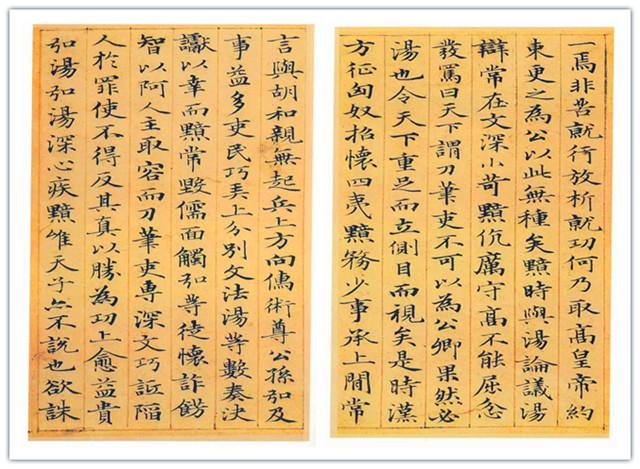 一焉非苦就行放析就功何乃取高皇帝約
束更之為公以此無種矣黯時與湯論議湯
辯常在文深小苛黯伉厲守高不能屈忿
發罵曰天下謂刀筆吏不可以為公卿果然必
湯也令天下重足而立側目而視矣是時漢
方征匈奴招懷四夷黯務少事承上閒常
言與胡和親無起兵上方向儒術尊公孫弘及
事益多吏民巧弄上分別文法湯等數奏決
讞以幸而黯常毀儒面觸弘等徒懷詐飾
智以阿人主取容而刀筆吏專深文巧詆陷
人於罪使不得反其真以勝為功上愈益貴
弘湯弘湯深心疾黯唯天子亦不說也欲誅